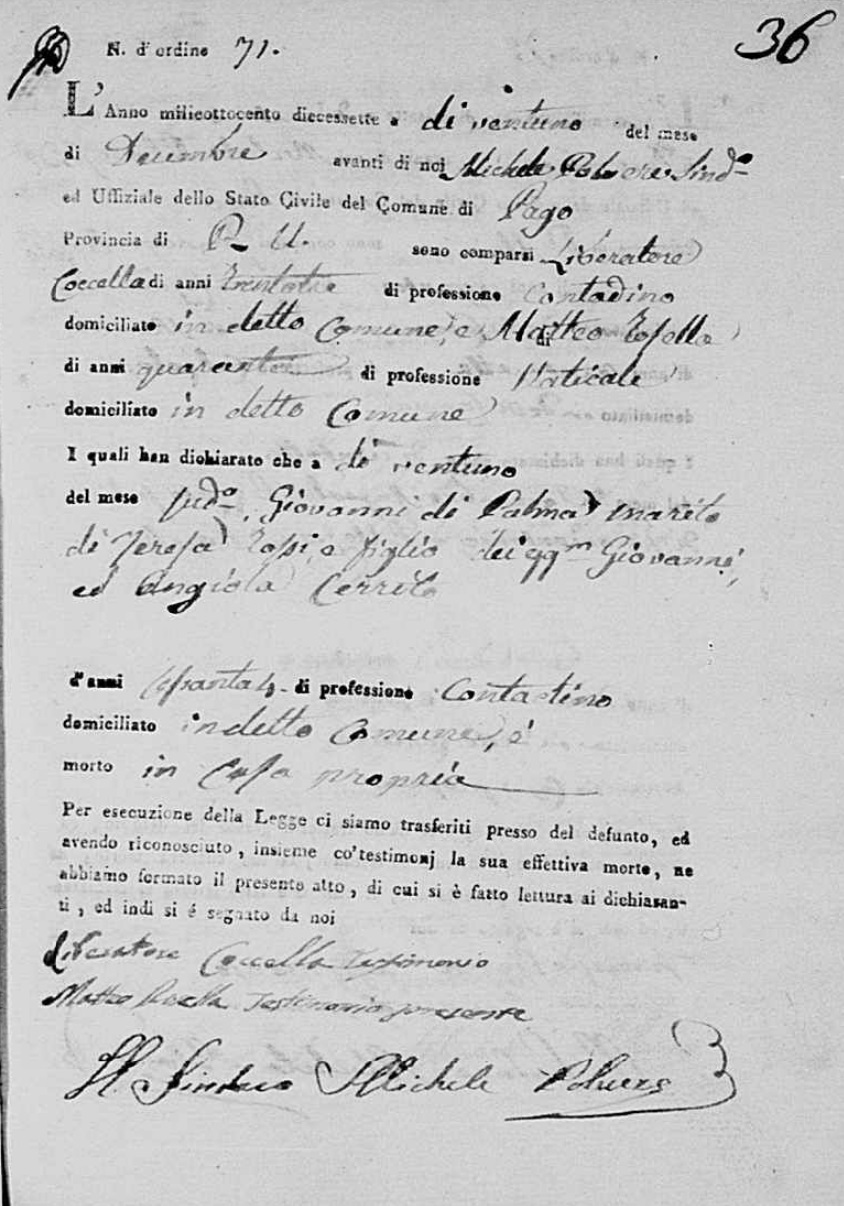 36
N. d'ordine 71.
L'Anno milleottocento diecessette a di ventuno del mese
di Decembre avanti di noi Michele Polvere Sind.o
ed Uffiziale dello Stato Civile del Comune di Pago
Provincia di P. U. sono comparsi Liberatore
Coccella di anni trentotre di professione Contadino
domiciliato in detto Comune, e Matteo
di anni quaranta di professione Vaticale
domiciliato in detto Comune
I quali han dichiarato che a di ventuno
del mese sud.o, Giovanni di Palma marito
di Teresa e figlio dei qq.m Giovanni,
ed Angiola Cerrito
d'anni di professione Contadino
domiciliato in detto Comune, é
morto in Casa propria
Per esecuzione della Legge ci siamo trasferiti presso del defunto, ed
avendo riconosciuto, insieme co'testimonj la sua effettiva morte, ne
abbiamo formato il presente atto, di cui si è fatto lettura ai dichiaran-
ti, ed indi si é segnato da noi
Liberatore Coccella Testimonio
Matteo Testimonio presente
Il Sindaco Michele Polvere